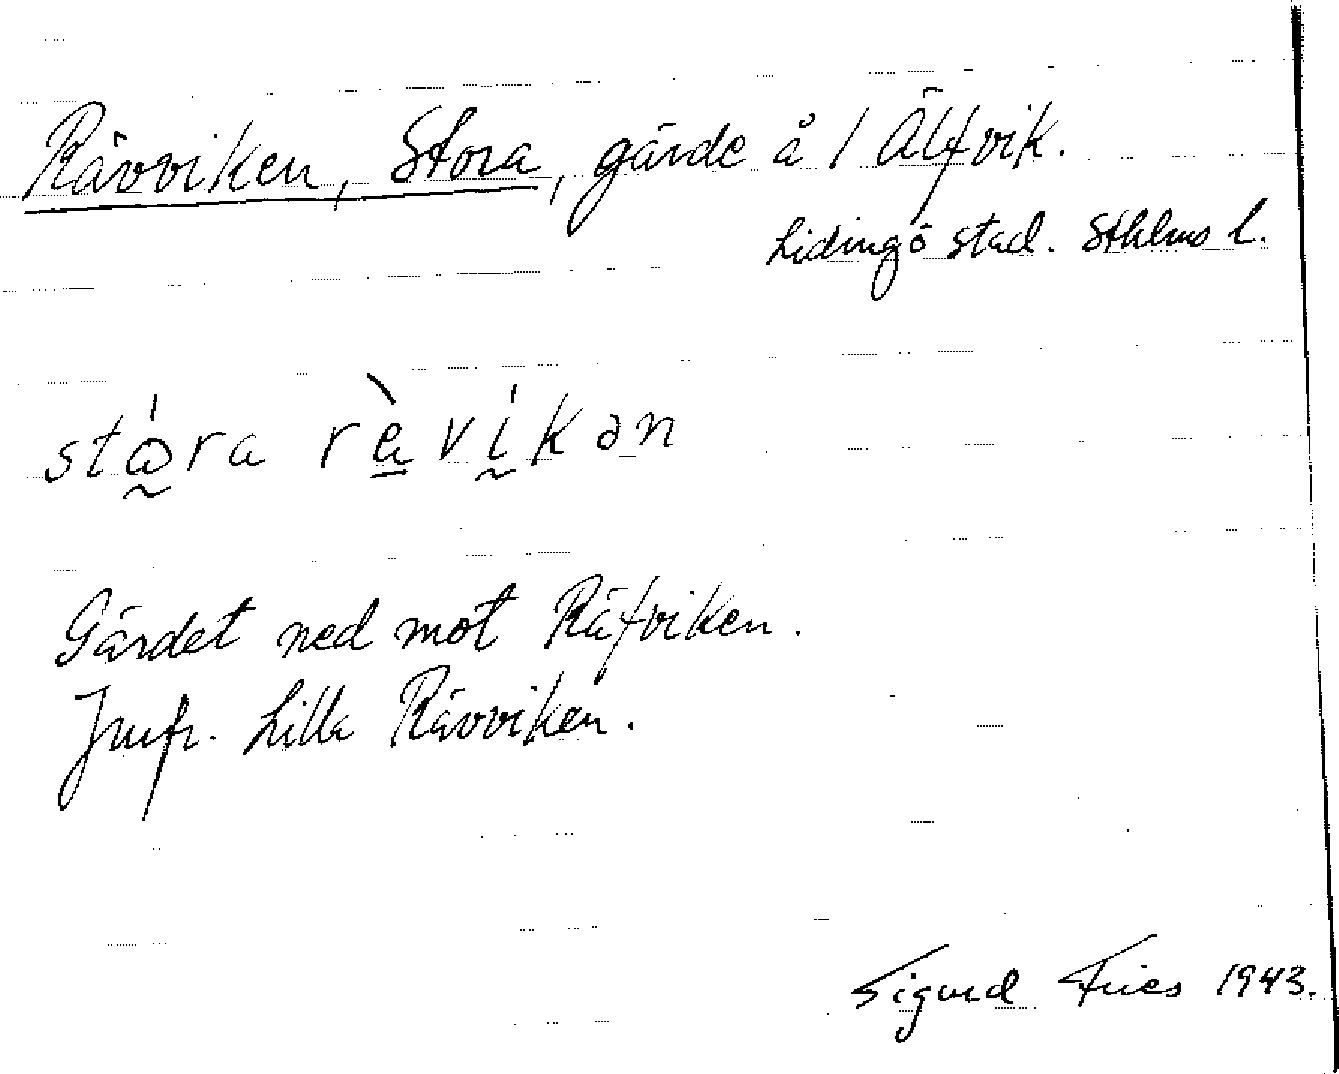 Rävviken, Stora, gärde å / Älfvik.
Lidingö stad. Sthlms l.
stώ̰ra rὲv ḭ́kən
Gärdet ned mot Räfviken.
Jmfr. Lilla Rävviken.
Sigurd Fries 1943.